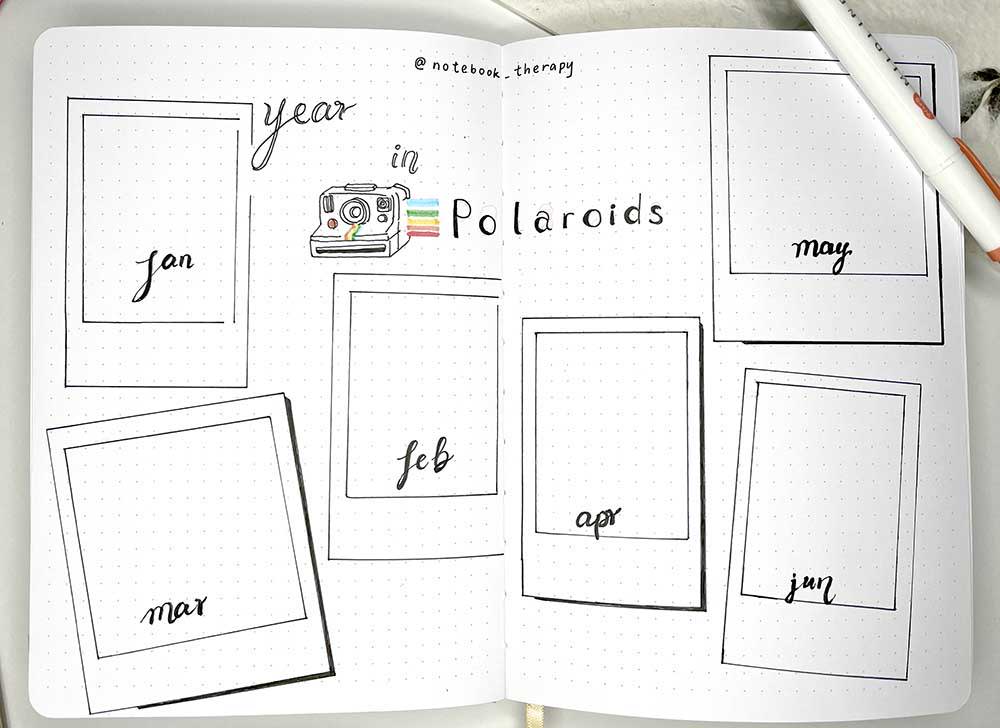 @notebook_therapy
year
in
Polaroids
jan
feb
mar
apr
may
jun